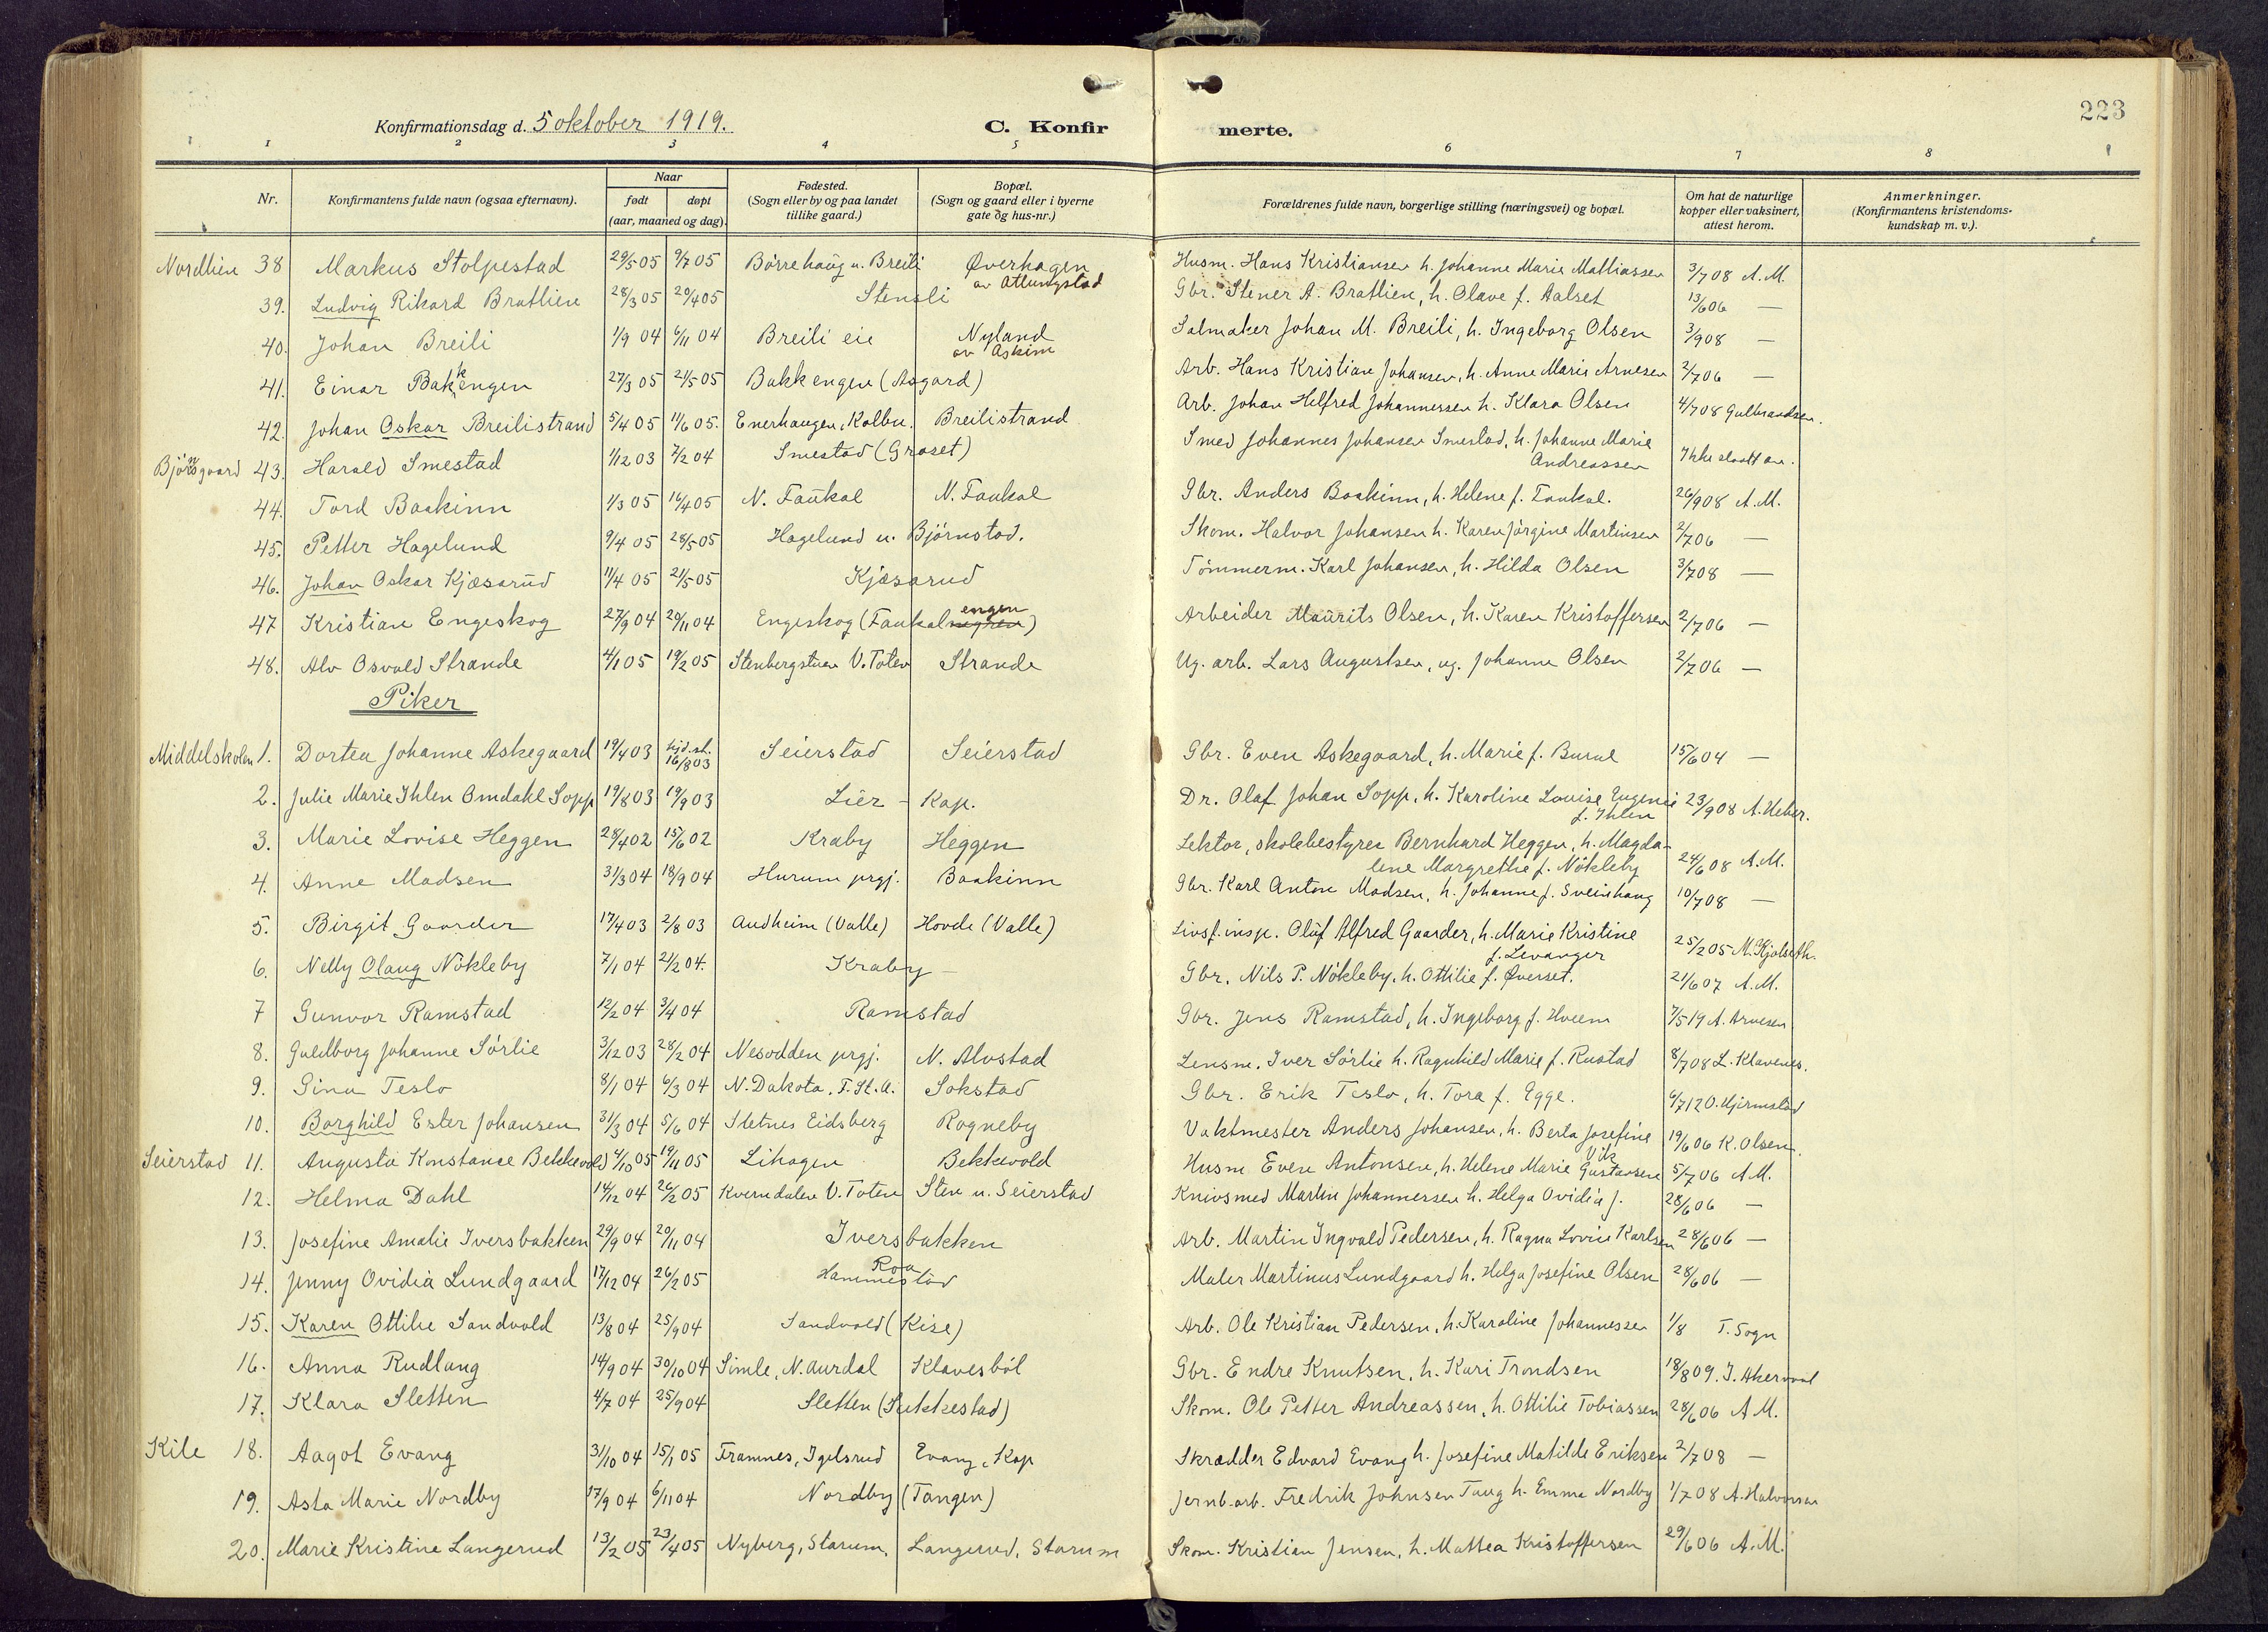 223
Konfirmationsdag d. 5 oktober 1919. C. Konfir merte.
1 2 3 4 5 6 7 8
Nr. Konfirmantens fulde navn (ogsaa efternavn). Naar født døpt (aar, maaned og dag). Fødested. (Sogn eller by og paa landet tillike gaard.) Bopæl. (Sogn og gaard eller i byerne gate og hus-nr.) Forældrenes fulde navn, borgerlige stilling (næringsvei) og bopæl. Om hat de naturlige kopper eller vaksinert, attest herom. Anmerkninger. (Konfirmantens kristendoms- kundskap m. v.).
Nordlien 38 Markus Stolpestad 29/5 05 9/7 05 Börrehaug u. Breili Øverhagen av Atlungstad Husm. Hans Kristiansen h. Johanne Marie Mathiassen 3/7 08 A.M.
39. Ludvig Rikard Bratlien 28/3 05 20/4 05 Stensli Gbr. Stener A. Bratlien, h. Olave f. Aalset 13/6 06 —
40. Johan Breili 1/9 04 6/11 04 Breili eie Nyland av Askim Salmaker Johan M. Breili, h. Ingeborg Olsen 3/9 08 —
41. Einar Bakkengen 27/3 05 21/5 05 Bakkengen (Asgard) Arb. Hans Kristian Johansen, h. Anne Marie Arnesen 2/7 06 —
42. Johan Oskar Breilistrand 5/4 05 11/6 05. Enerhaugen, Kolbu. Breilistrand Arb. Johan Helfred Johannessen h. Klara Olsen 4/7 08 Gulbrandsen.
Björnsgaard 43. Harald Smestad 1/12 03 7/2 04 Smestad (Graset) Smed Johannes Johansen Smestad, h. Johanne Marie Andreassen Ikke slaatt an.
44. Tord Baakinn 1/3 05 16/4 05 N. Faukal N. Faukal Gbr. Anders Baakinn, h. Helene f. Faukal. 26/9 08 A.M.
45. Petter Hagelund 9/4 05 28/5 05 Hagelund u. Björnstad. Skom. Halvor Johansen h. Karen Jörgine Martinsen 2/7 06 —
46. Johan Oskar Kjæsarud 11/4 05 21/5 05 Kjæsarud Tömmerm. Karl Johansen, h. Hilda Olsen 3/7 08 —
47 Kristian Engeskog 27/9 04 20/11 04 Engeskog (Faukalengen) Arbeider Maurits Olsen, h. Karen Kristoffersen 2/7 06 —
48. Alv Osvald Strande 4/1 05 19/2 05 Stenbergstuen V. Toten Strande Ug. arb. Lars Augustsen, ug. Johanne Olsen 2/7 06 —
Piker
Middelskolen 1. Dortea Johanne Askegaard 19/4 03 hjd. st. 16/8 03 Seierstad Seierstad Gbr. Even Askegaard, h. Marie f. Burul 15/6 04 —
2. Julie Marie Ihlen Omdahl Sopp 19/8 03 19/9 03 Lier - Kap. Dr. Olaf Johan Sopp, h. Karoline Louise Eugenie f. Ihlen 23/9 08
3. Marie Lovise Heggen 28/4 02 15/6 02 Kraby Heggen Lektor, skolebestyrer Bernhard Heggen, h. Magdalene Margrethe f. Nökleby 24/6 08 A.M.
4. Anne Madsen 31/3 04 18/9 04 Hurum prgj. Baakinn Gbr. Karl Anton Madsen, h. Johanne f. Sveinhaug 10/7 08 —
5. Birgit Gaarder 17/4 03 2/8 03 Audheim (Valle) Hovde (Valle) Livsf.insp. Oluf Alfred Gaarder, h. Marie Kristine f. Levanger 25/2 05 M. Kjølseth.
6. Nelly Olaug Nökleby 7/1 04 21/2 04. Kraby — Gbr. Nils P. Nökleby, h. Ottilie f. Øverset. 21/6 07 A.M.
7 Gunvor Ramstad 12/2 04 3/4 04 Ramstad Gbr. Jens Ramstad, h. Ingeborg f. Hveem 7/5 19 A. Arnesen
8. Guldborg Johanne Sörlie 3/12 03 28/2 04 Nesodden prgj. N. Alvstad Lensm. Iver Sörlie h. Ragnhild Marie f. Rustad 8/7 08 L. Klavenes.
9. Gina Teslo 8/1 04 6/3 04 N. Dakota. F. St. A. Sokstad Gbr. Erik Teslo, h. Tora f. Egge. 6/7 12 O. Hjermstad
10. Borghild Ester Johansen 31/3 04 5/6 04 Sletnes Eidsberg Rogneby Vaktmester Anders Johansen, h. Berta Josefine Vik 19/6 06 K. Olsen.
Seierstad 11. Augusta Konstanse Bekkevold 4/10 05 19/11 05 Lihagen Bekkevold Husm Even Antonsen, h. Helene Marie Gustavsen 5/7 06 A.M.
12. Helma Dahl 14/12 04 26/2 05 Kverndalen V. Toten Sten u. Seierstad Knivsmed Martin Johannessen h. Helga Ovidia f. 28/6 06 —
13. Josefine Amalie Iversbakken 29/9 04 20/11 04 Iversbakken Arb. Martin Ingvald Pedersen, h. Ragna Lovise Karlsen 28/6 06 —
14. Jenny Ovidia Lundgaard 17/12 04 26/2 05 Roa Hammestad Maler Martinus Lundgaard h. Helga Josefine Olsen 28/6 06 —
15. Karen Ottilie Sandvold 13/8 04 25/9 04 Sandvold (Kise) Arb. Ole Kristian Pedersen, h. Karoline Johannessen 1/8 T. Sogn
16. Anna Rudlang 14/9 04 30/10 04 Simle, N. Aurdal Klavesböl Gbr. Endre Knutsen, h. Kari Trondsen 18/8 09. J. Akervold
17. Klara Sletten 4/7 04 25/9 04 Sletten (Sukkestad) Skom. Ole Petter Andreassen, h. Ottilie Tobiassen 28/6 06 A M.
Kile 18. Aagot Evang 31/10 04 15/1 05 Framnes, Igelsrud Evang, Kap Skrædder Edvard Evang h. Josefine Matilde Eriksen 2/7 08 —
19. Asta Marie Nordby 17/9 04 6/11 04 Nordby (Tangen) Jernb.arb. Fredrik Johnsen Taug h. Emma Nordby 1/7 08 A. Halvorsen
20. Marie Kristine Langerud 13/2 05 23/4 05 Nyberg, Starum. Langerud, Starum Skom. Kristian Jensen, h. Mattea Kristoffersen 29/6 06 A.M.